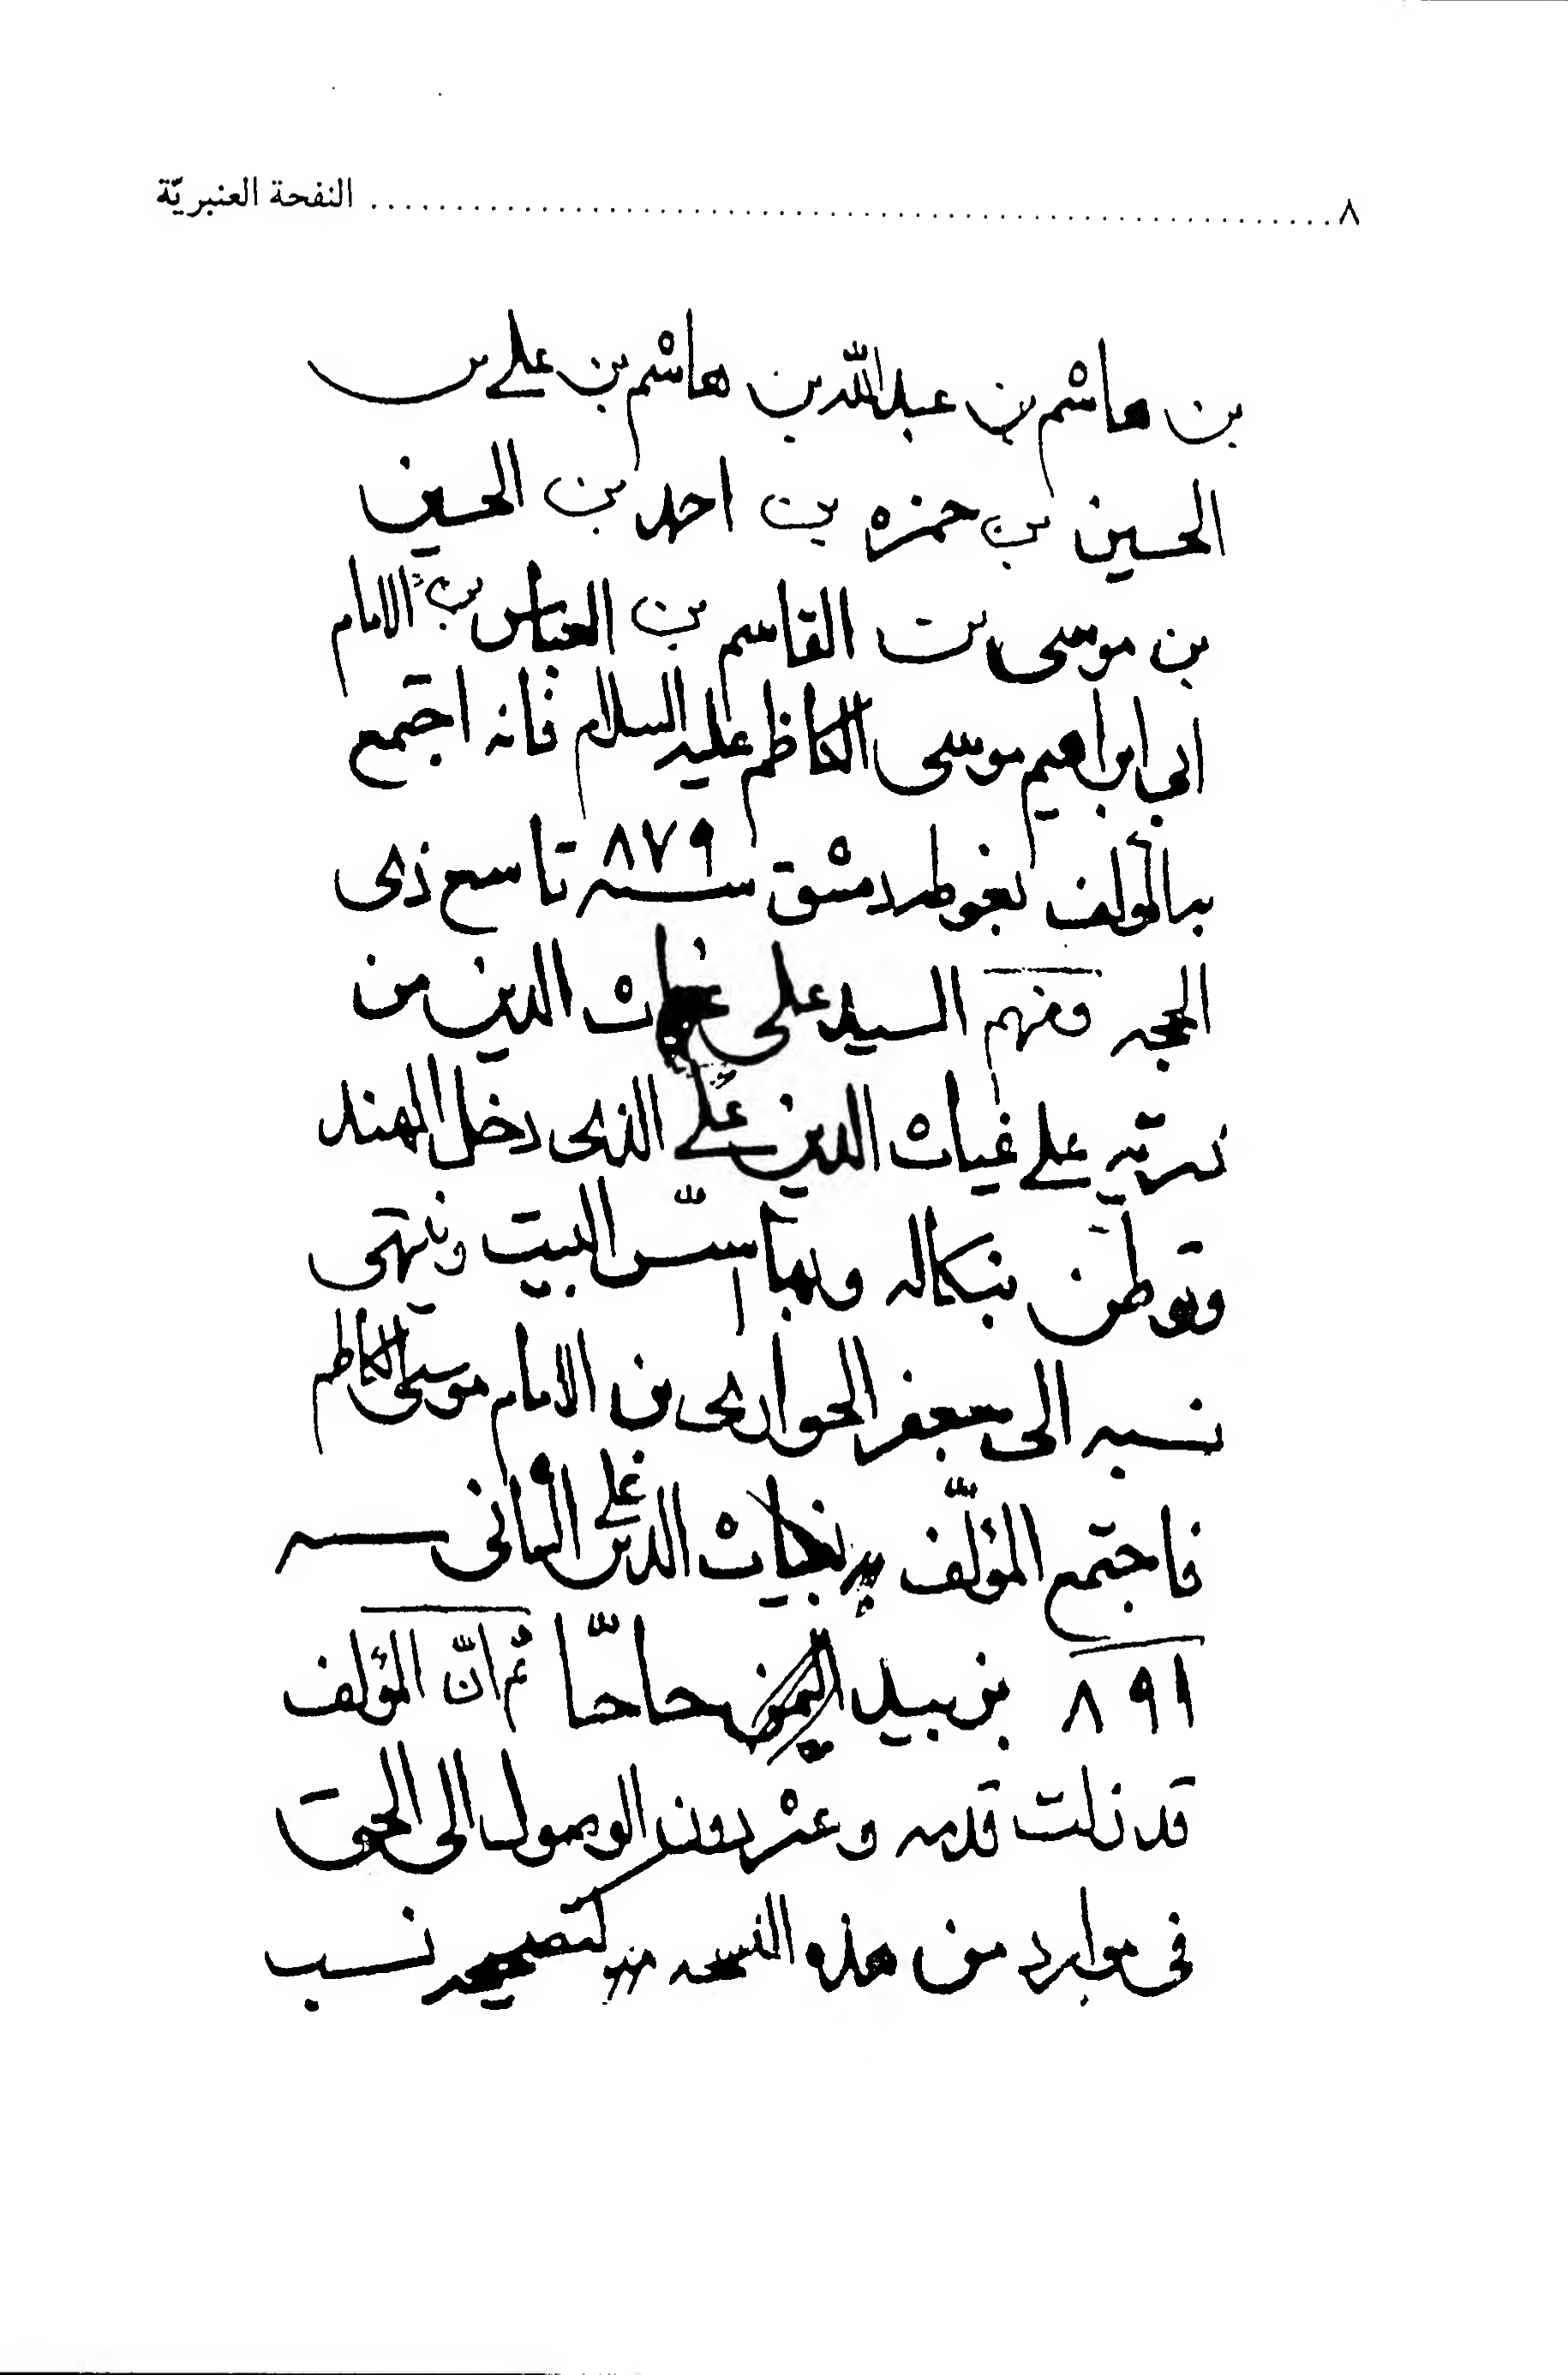 ٨ ........ النفحة العنبريّة
بن هاشم بن عبدالله بن هاشم بن علي بن
الحسين بن حمزه بن احمد بن الحسين
بن موسى بن القاسم بن العباس بن الامام
ابي ابراهيم موسى الكاظم عليه السلام فانه اجتمع
بالمؤلف بغوطه دمشق سنه ٨٧٩ تاسع ذي
الحجه ومنهم السيد علي غياث الدين من
ذريه علي غياث الدين علي الذي دخل الهند
وتوطن بنكاله وبها اسّس البيت وينتهى
نسبه الى جعفر الحواري بن الامام موسى الكاظم
فاجتمع المؤلّف غياث الدين علي الثاني سنه
٨٩١ بزبيد اليمن حاجّا ثم انّ المؤلف
قد زلت قدمه وعثر دون الوصول الى الحق
في موارد من هذه النسخه كتصحيحه نسب